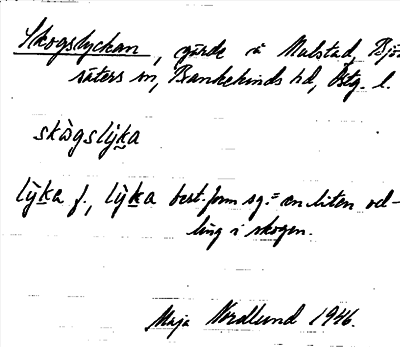 Skogslyckan, gärde å Malstad, Bjö
säters sn, Bankekinds hd, Östg. l.
skògslỳka
lỳka f., lỳka best. form sg. = en liten od-
ling i skogen.
Maja Nordlund 1946.